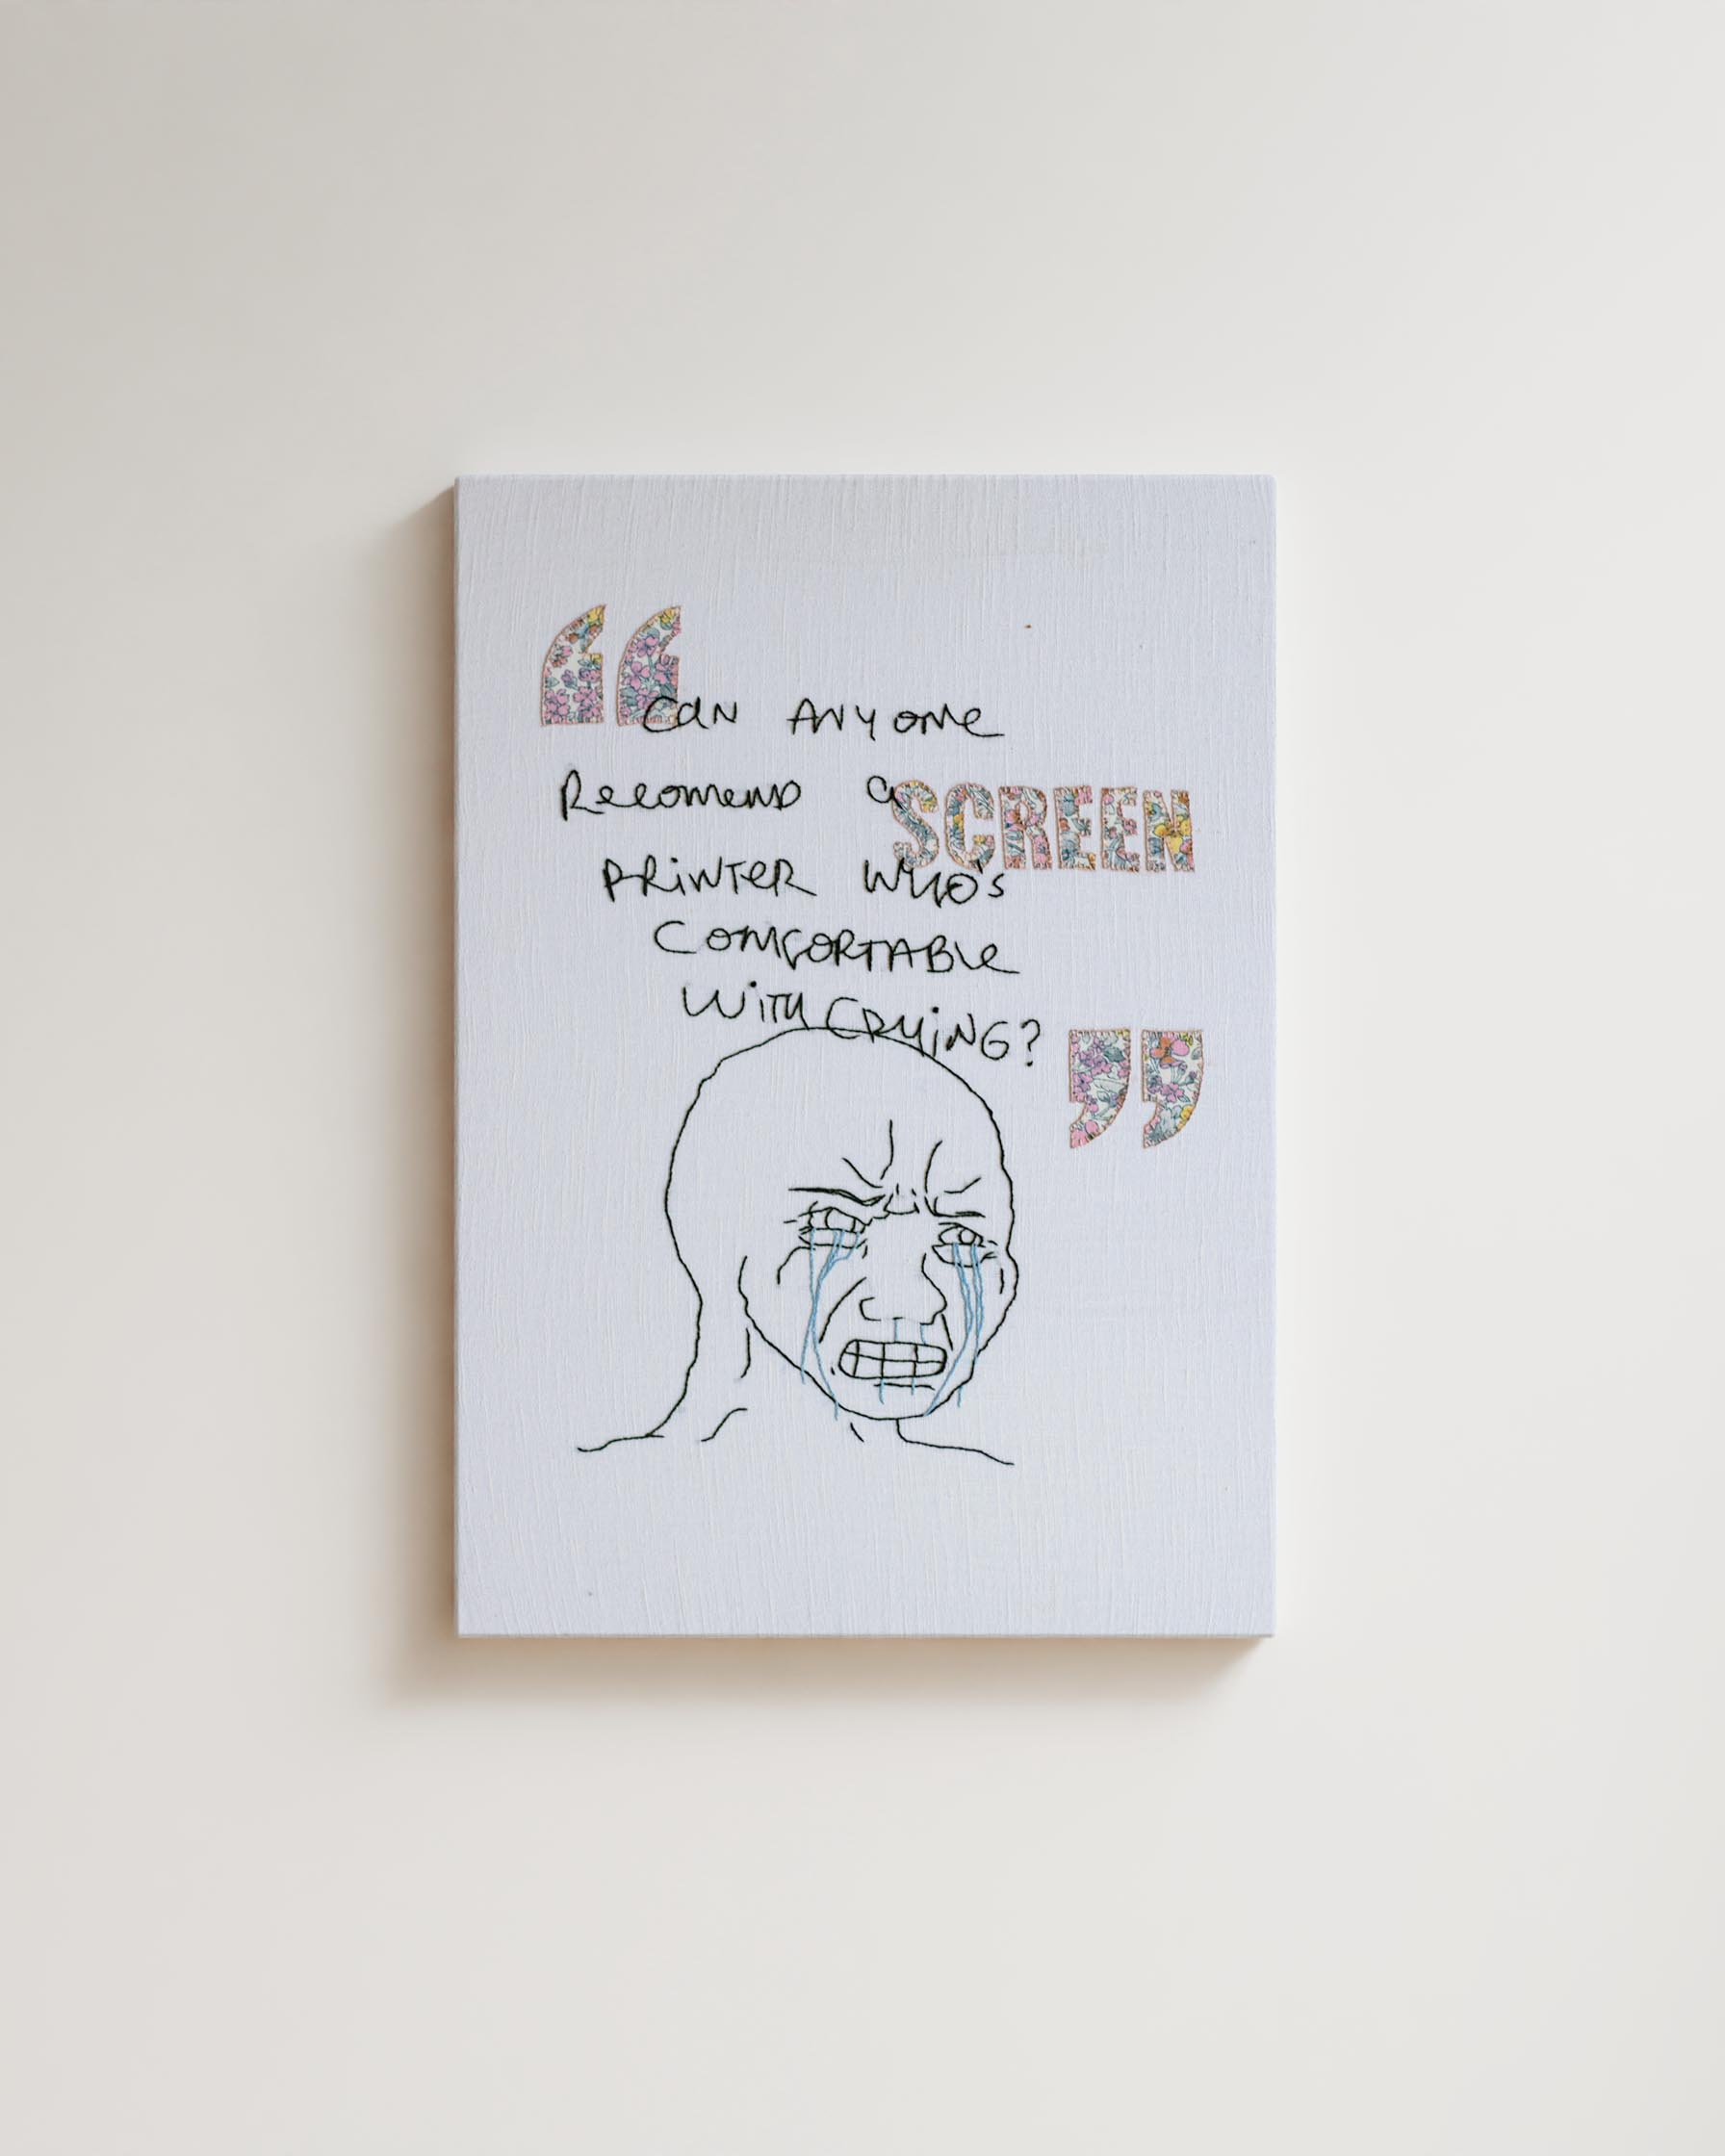 “Can Anyone
Recomend a SCREEN
PRiNTeR WHO's
COMFORTABle
WiTH CRYiNG? ”